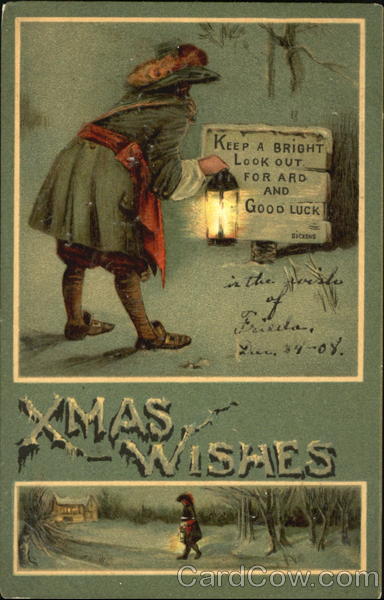 KEEP A BRIGHT
LOOK OUT
FOR ARD
AND
GOOD LUCK
DICKENS
is the wish
of
Frieda.
Dec. 24-08.
XMAS
WISHES
CardCow.com